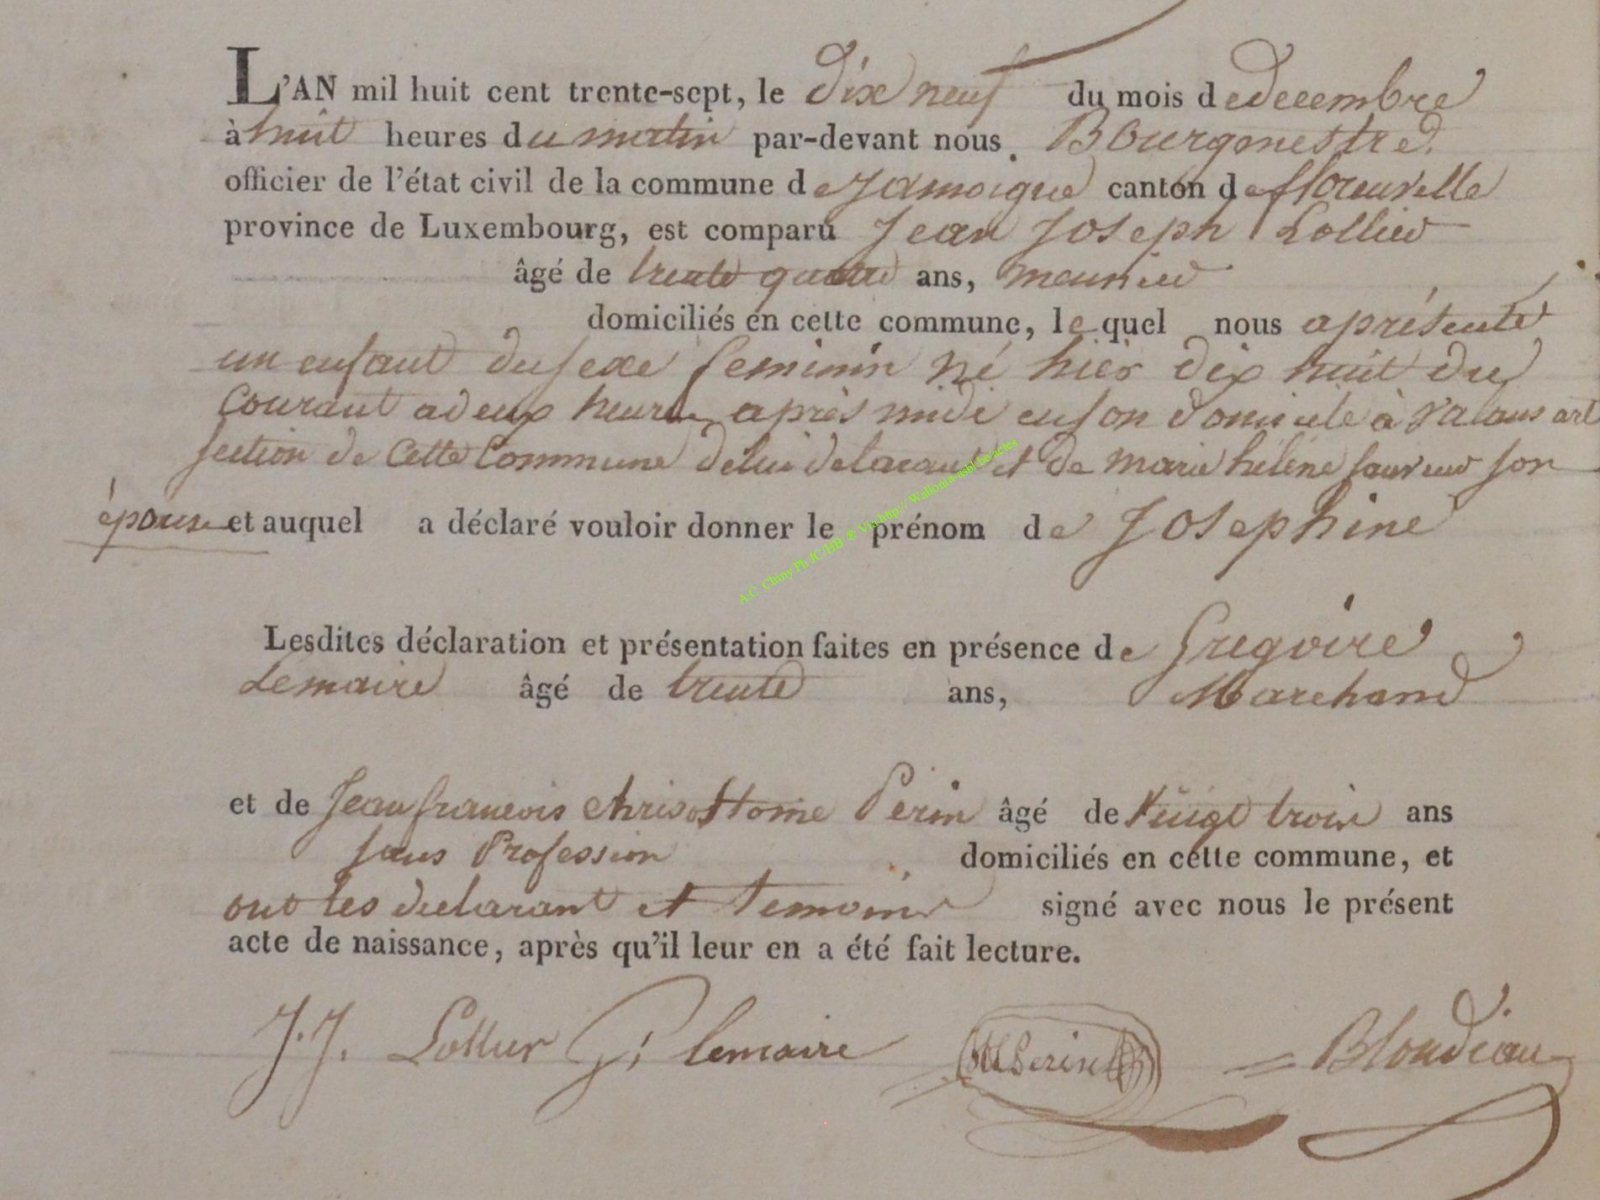 L'AN mil huit cent trente-sept, le dix neuf du mois de decembre
à huit heures du matin par-devant nous. Bourgmestre
officier de l'état civil de la commune de Jamoigne canton de florenville
province de Luxembourg, est comparu Jean Joseph Lollier
âgé de trente quatre ans, meunier
domiciliés en cette commune, le quel nous a présenté
un enfant du sexe feminin né hier dix huit du
Courant a deux heures après midi en son domicile à Valansart
section de Cette Commune de lui declarant et de marie hélène sauveur son
épouse et auquel a déclaré vouloir donner le prénom de Josephine
A.C. Chiny Ph JC/BB
Lesdites déclaration et présentation faites en présence de Gregoire
Lemaire âgé de trente ans, Marchand
et de Jean francois chrisostome Perin âgé de Vingt trois ans
sans Profession domiciliés en cette commune, et
ont les declarant et temoins signé avec nous le présent
acte de naissance, après qu'il leur en a été fait lecture.
J. J. Lollier G; lemaire Perin Blondeau